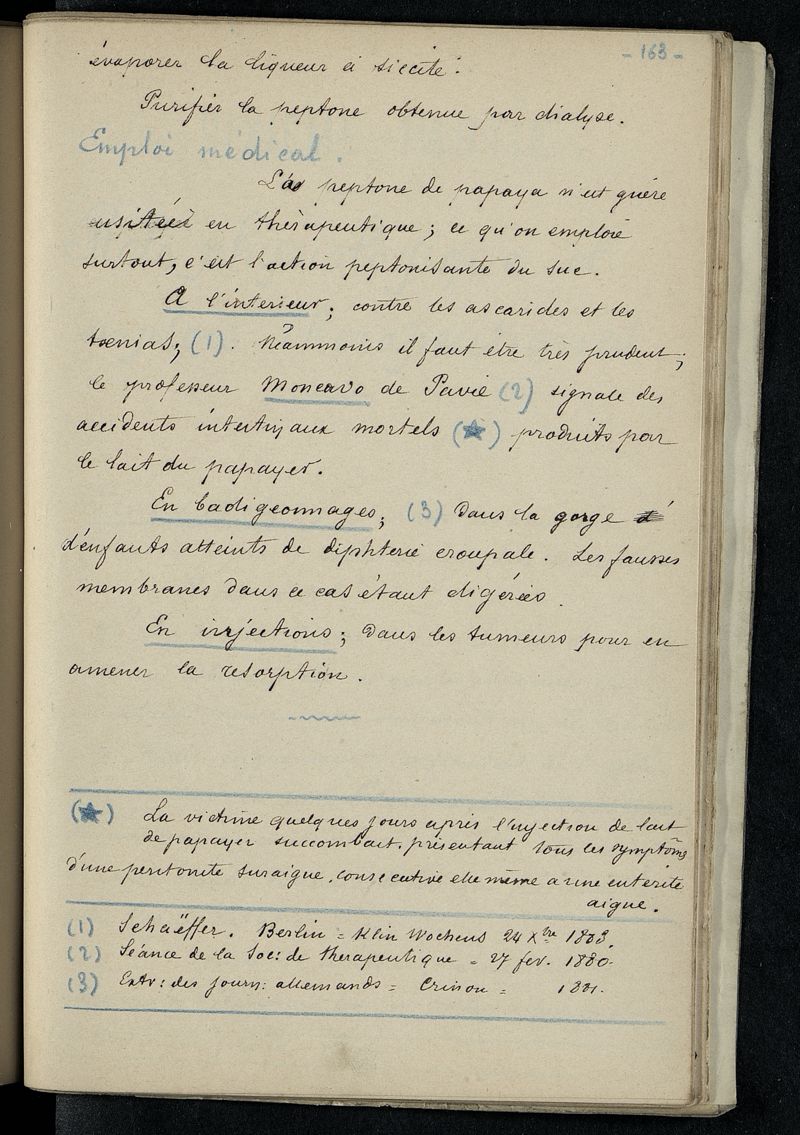 - 163 -
évaporer la liqueur à siccité.
Purifier la peptone obtenue par dialyse.
Emploi médical.
La peptone de papaya n'est guère
usitée en thérapeutique; ce qu'on emploie
surtout, c'est l'action peptonisante du suc.
A l'interieur; contre les ascarides et les
tœnias; (1). Néammoins il faut être très prudent;
le professeur Moncavo de Pavie (2) signale des
accidents intestinaux mortels (★) produits par
le lait du papayer.
En badigeonnages; (3) dans la gorge d'
d'enfants atteints de diphterie croupale. Les fausses
membranes dans ce cas étant digérées.
En injections; dans les tumeurs pour en
amener la résorption.
(★) La victime quelques jours après l'injection de lait
de papayer succombait, présentant tous les symptôms
d'une peritonite suraigue, consecutive elle même a une enterite
aigue.
(1) Schaëffer. Berlin = Klin Wochens 24 Xbre 1883.
(2) Séance de la Soc: de therapeutique = 27 fev. 1880.
(3) Extr: des journ: allemands = Crinon = 1881.